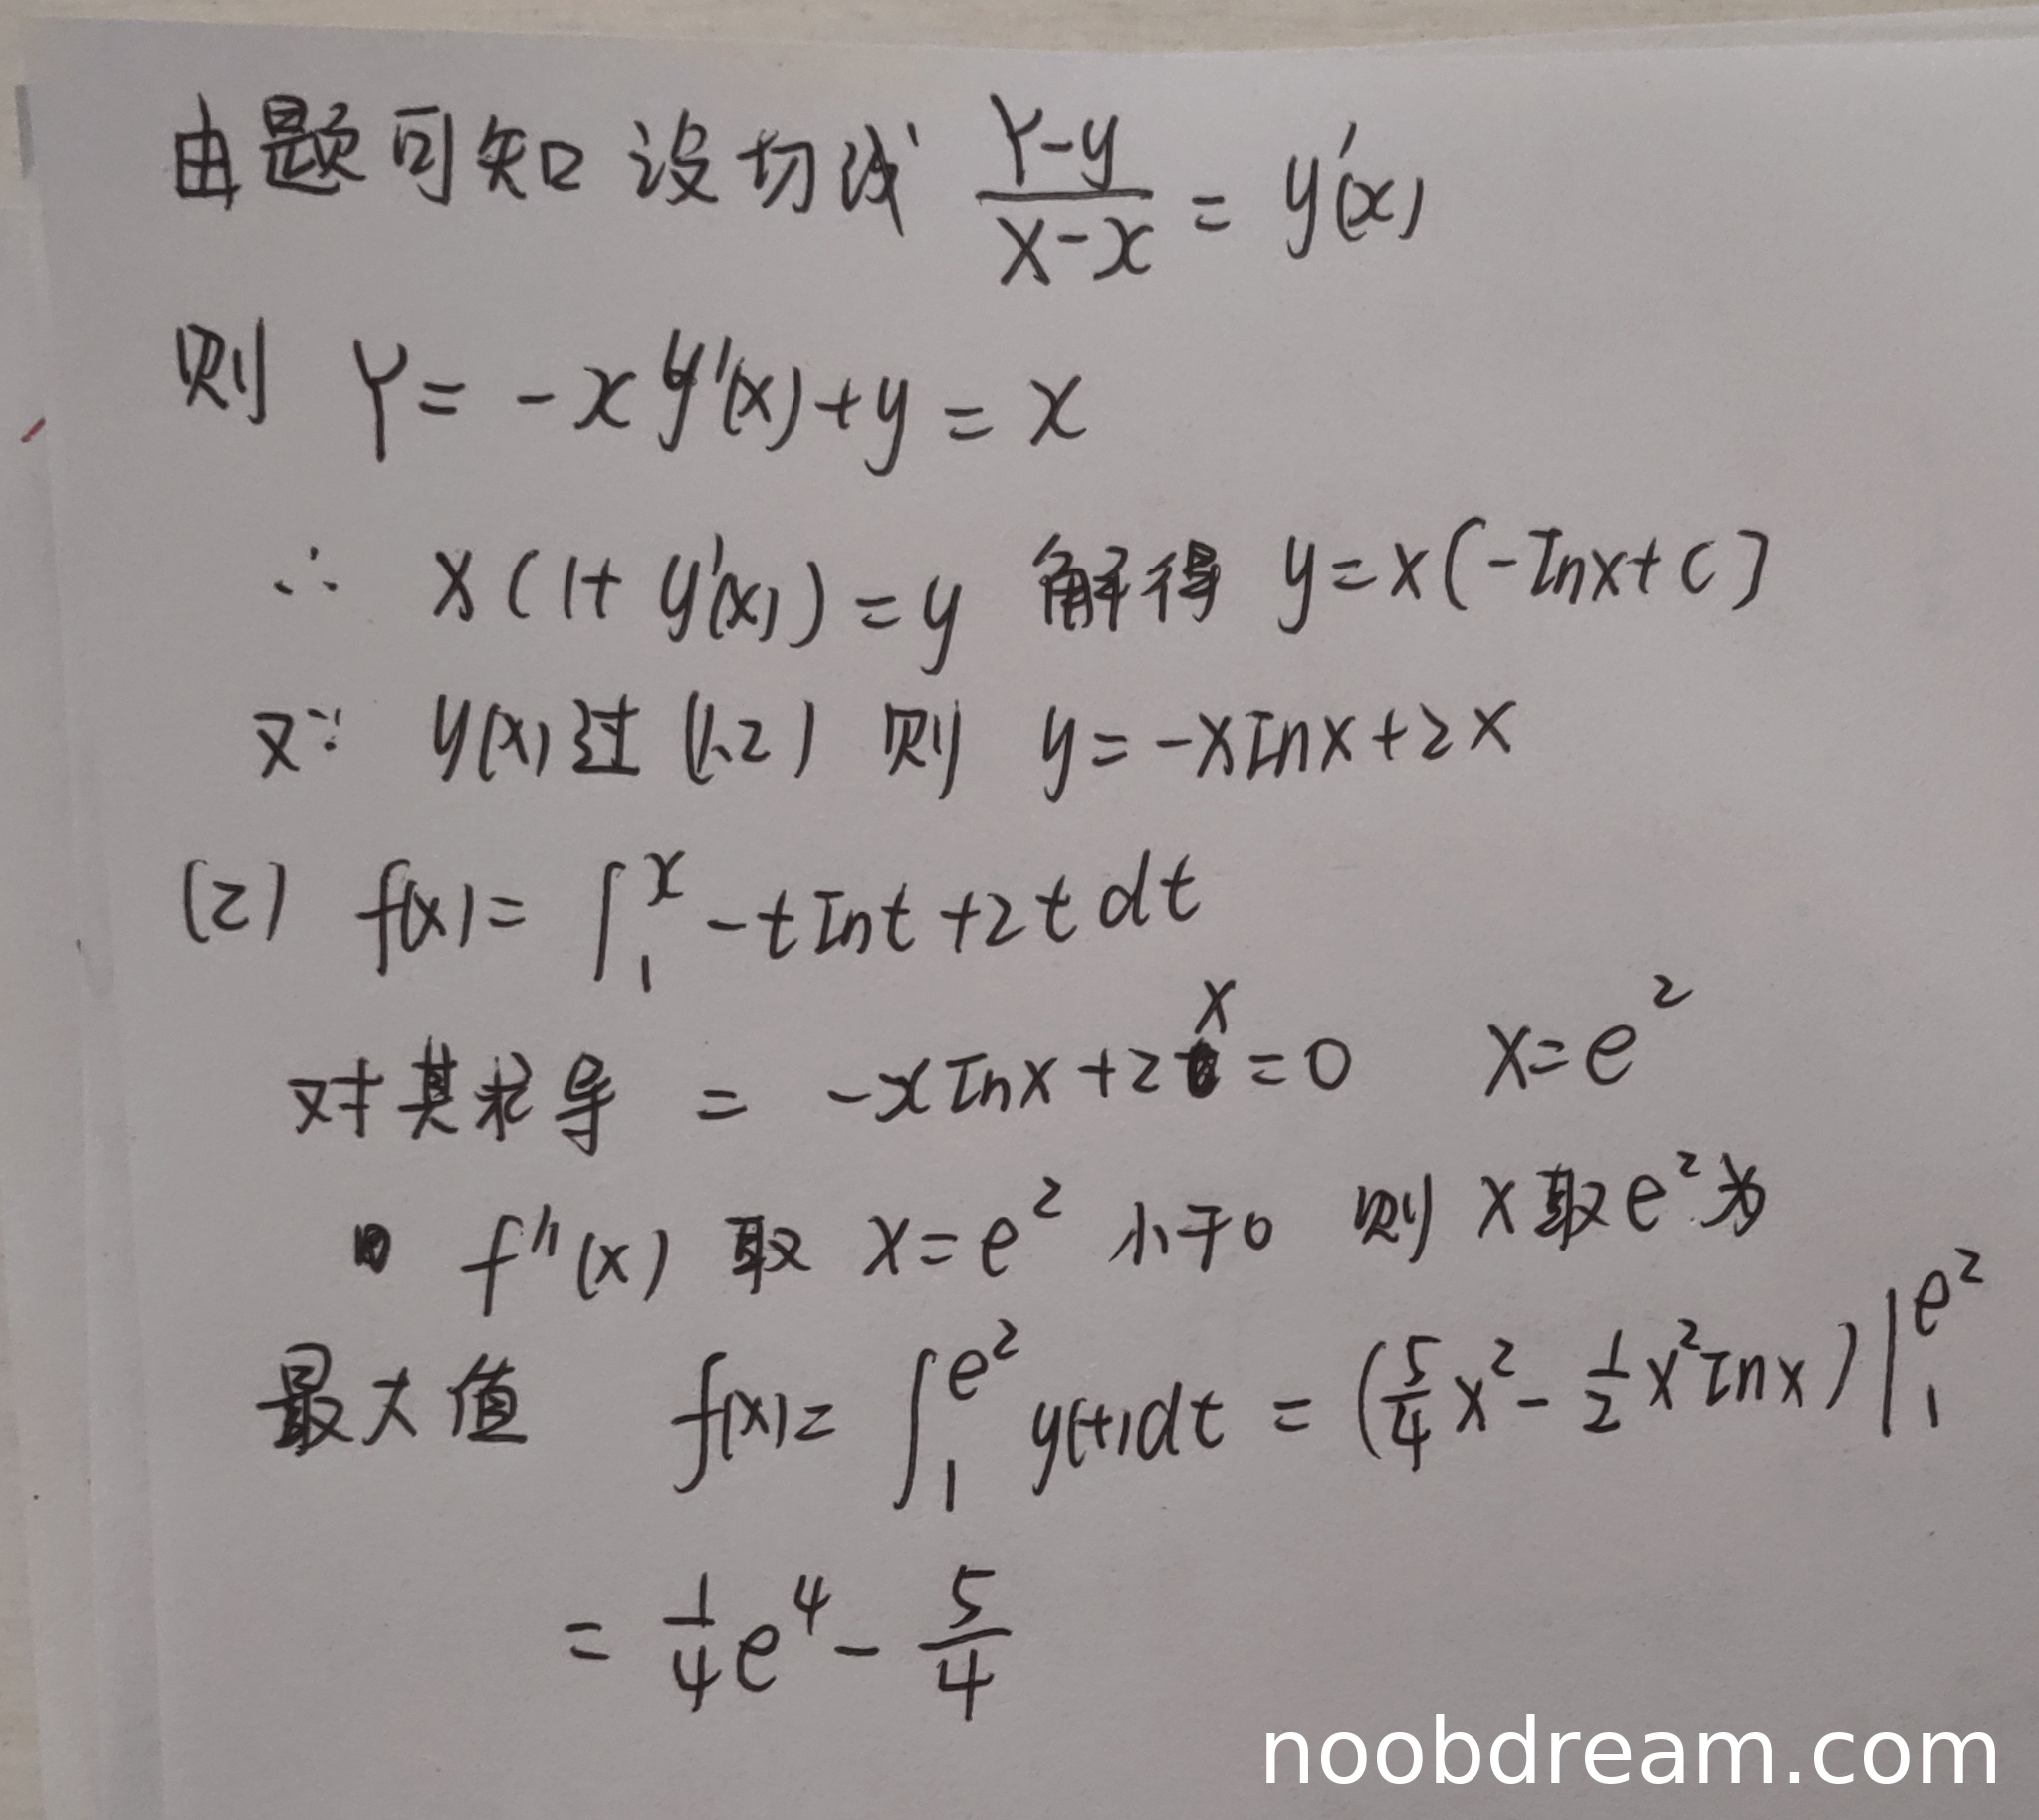 由题可知 设切线 \frac{Y-y}{X-x} = y'(x)
则 Y = -xy'(x)+y = x
∴ x(1+y'(x)) = y 解得 y=x(-Inx+C)
又∵ y(x)过(1,2) 则 y=-xInx+2x
(2) f(x)= ∫_1^x -tInt+2tdt
对其求导 = -xInx+2x=0 x=e^2
f''(x) 取 x=e^2 小于0 则 x取e^2为
最大值 f(x)= ∫_1^{e^2} y(t)dt = (\frac{5}{4}x^2-\frac{1}{2}x^2Inx)|_1^{e^2}
= \frac{1}{4}e^4-\frac{5}{4}
noobdream.com